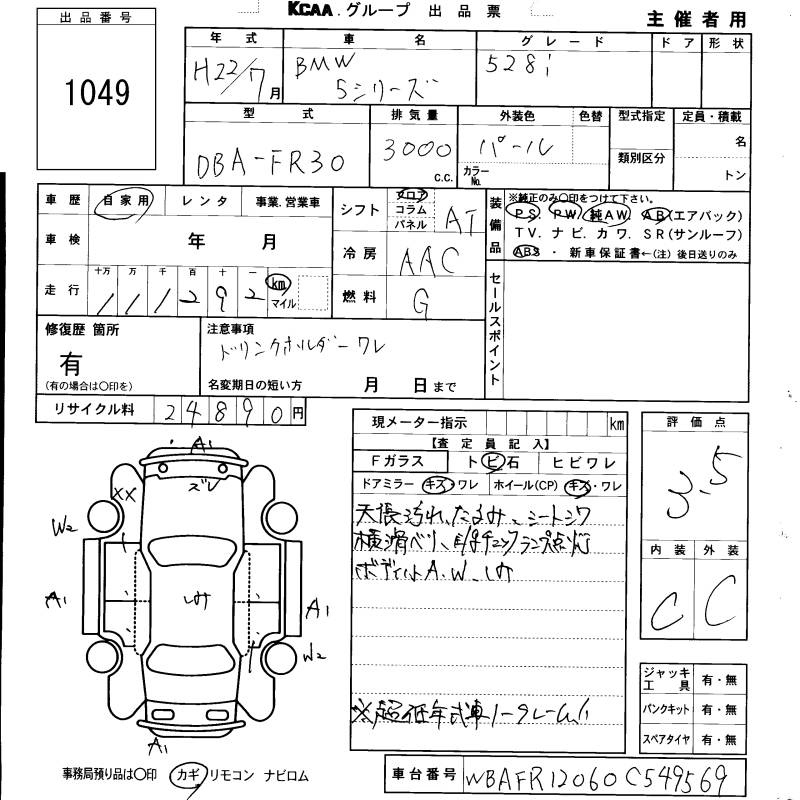 KCAA.グループ 出品票
主催者用
出品番号
1049
年式 車名 グレード ドア 形状
H22/7月 BMW 5シリーズ 528i
型式 排気量 外装色 色替 型式指定 定員・積載
DBA-FR30 3000 C.C. パール カラーNo. 類別区分 名 トン
車歴 自家用 レンタ 事業.営業車
車検 年 月
走行 十万 万 千 百 十 一
/ / 1 2 9 2 km マイル
シフト フロア コラム パネル AT
冷房 AAC
燃料 G
装備品 ※純正のみ○印をつけて下さい。
PS PW 純AW AB(エアバック)
TV. ナビ. カワ. SR(サンルーフ)
ABS ・ 新車保証書←(注) 後日送りのみ
セールスポイント
修復歴 箇所
有
(有の場合は○印を)
注意事項
ドリンクホルダーワレ
名変期日の短い方 月 日まで
リサイクル料 24890円
現メーター指示 km
【査定員記入】
Fガラス ト ビ 石 ヒビワレ
ドアミラー キズ・ワレ ホイール(CP) キズ・ワレ
天張汚れ、たるみ、シートシワ
横滑ベリ、チェックランプ点灯
ボディ A.W.
※超低年式車ノークレーム
評価点
3.5
内装 外装
C C
A1
ズレ
XX
W2
A1
A1
W2
A1
ジャッキ工具 有・無
パンクキット 有・無
スペアタイヤ 有・無
事務局預り品は○印 カギ リモコン ナビロム
車台番号 WBAFR12060C549569